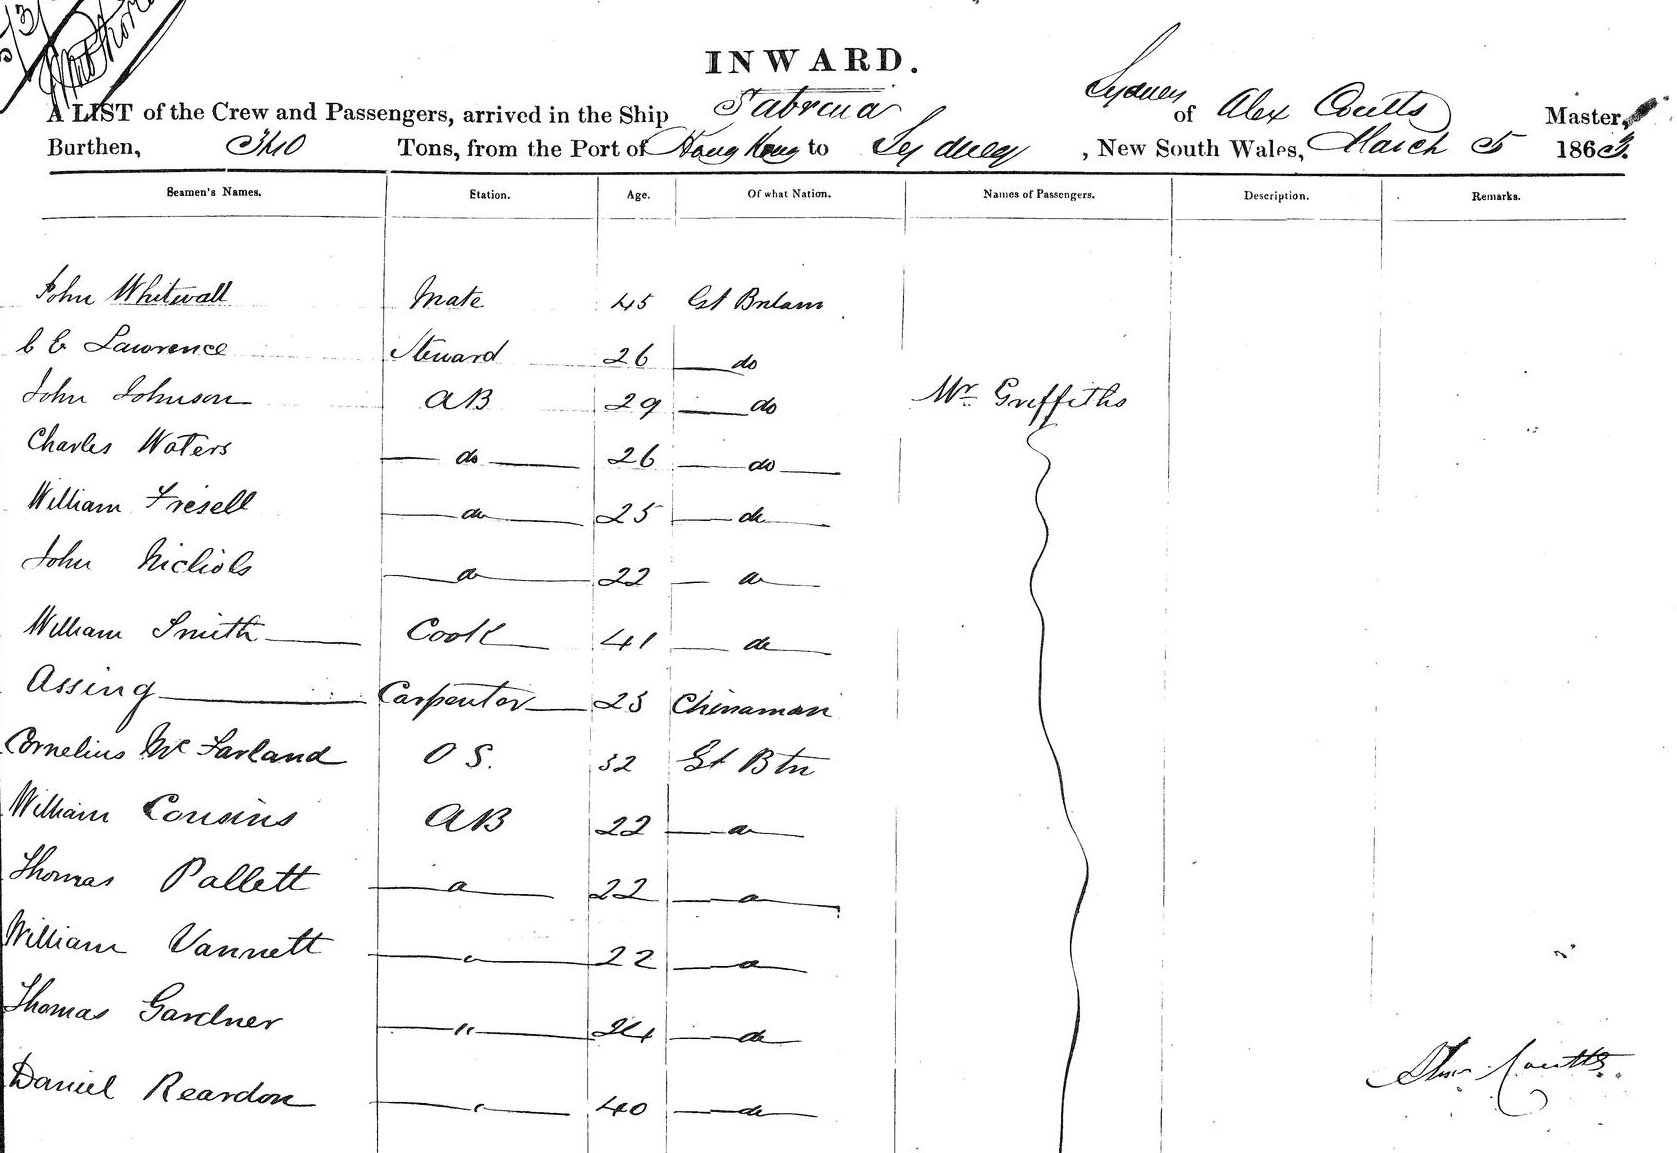 5/3/
INWARD.
A LIST of the Crew and Passengers, arrived in the Ship Sabrina Sydney of Alex Coutts Master,
Burthen, 340 Tons, from the Port of Hong Kong to Sydney, New South Wales, March 5 1863.
Seamen's Names. Station. Age. Of what Nation. Names of Passengers. Description. Remarks.
John Whitwall Mate 45 Gt Britain
C E Lawrence Steward 26 do
John Johnson AB 29 do Mr Griffiths
Charles Waters do 26 do
William Fresell do 25 do
John Nichols do 22 do
William Smith Cook 41 do
Assing Carpenter 23 Chinaman
Cornelius McFarland O S. 32 Gt Btn
William Cousins AB 22 do
Thomas Pallett do 22 do
William Vannett " 22 do
Thomas Gardner " 24 do
Daniel Reardon " 40 do
Alex Coutts